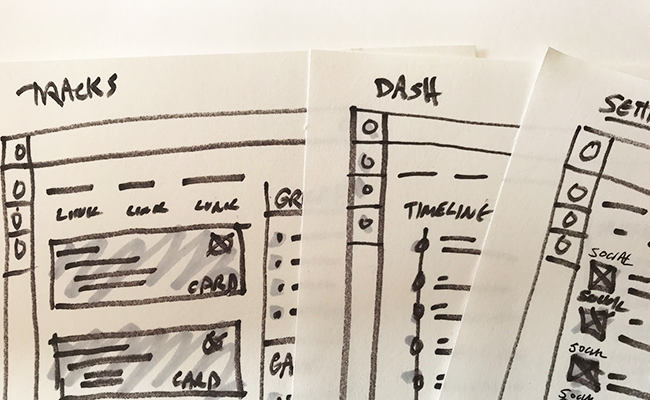 TRACKS
LINK LINK LINK
GR
CARD
CARD
GA
DASH
TIMELINE
SETT
SOCIAL
SOCIAL
SOCIAL
SOCIAL